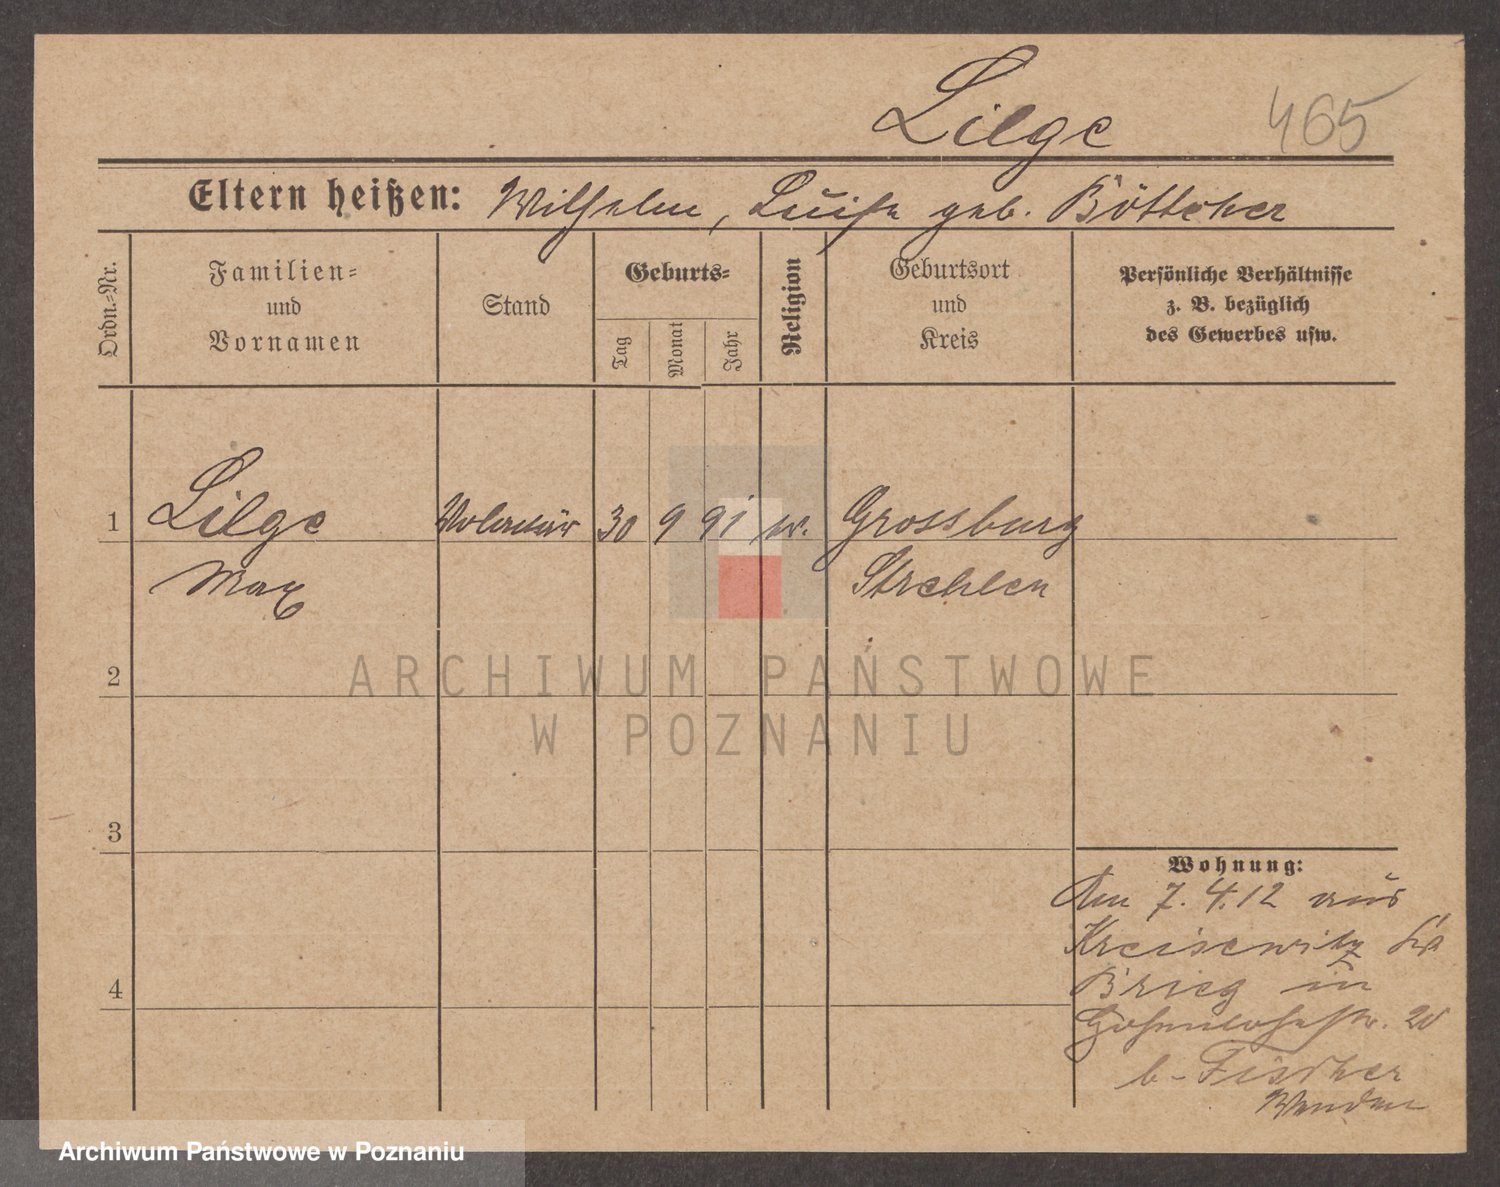 Lilge
465
Eltern heißen: Wilhelm, Luise geb. Böttcher
Ordn.-Nr.
Familien-
und
Vornamen
Stand
Geburts-
Tag
Monat
Jahr
Religion
Geburtsort
und
Kreis
Persönliche Verhältnisse
z. B. bezüglich
des Gewerbes usw.
1 Lilge Volontär 30 9 91 Grossburg
Max Strehlen
2
ARCHIWUM PAŃSTWOWE
W POZNANIU
3
Wohnung:
Am 7. 4. 12 aus
Kreisewitz
4
Brieg in
Hohenlohestr. 20
b. Fischer
Archiwum Państwowe w Poznaniu